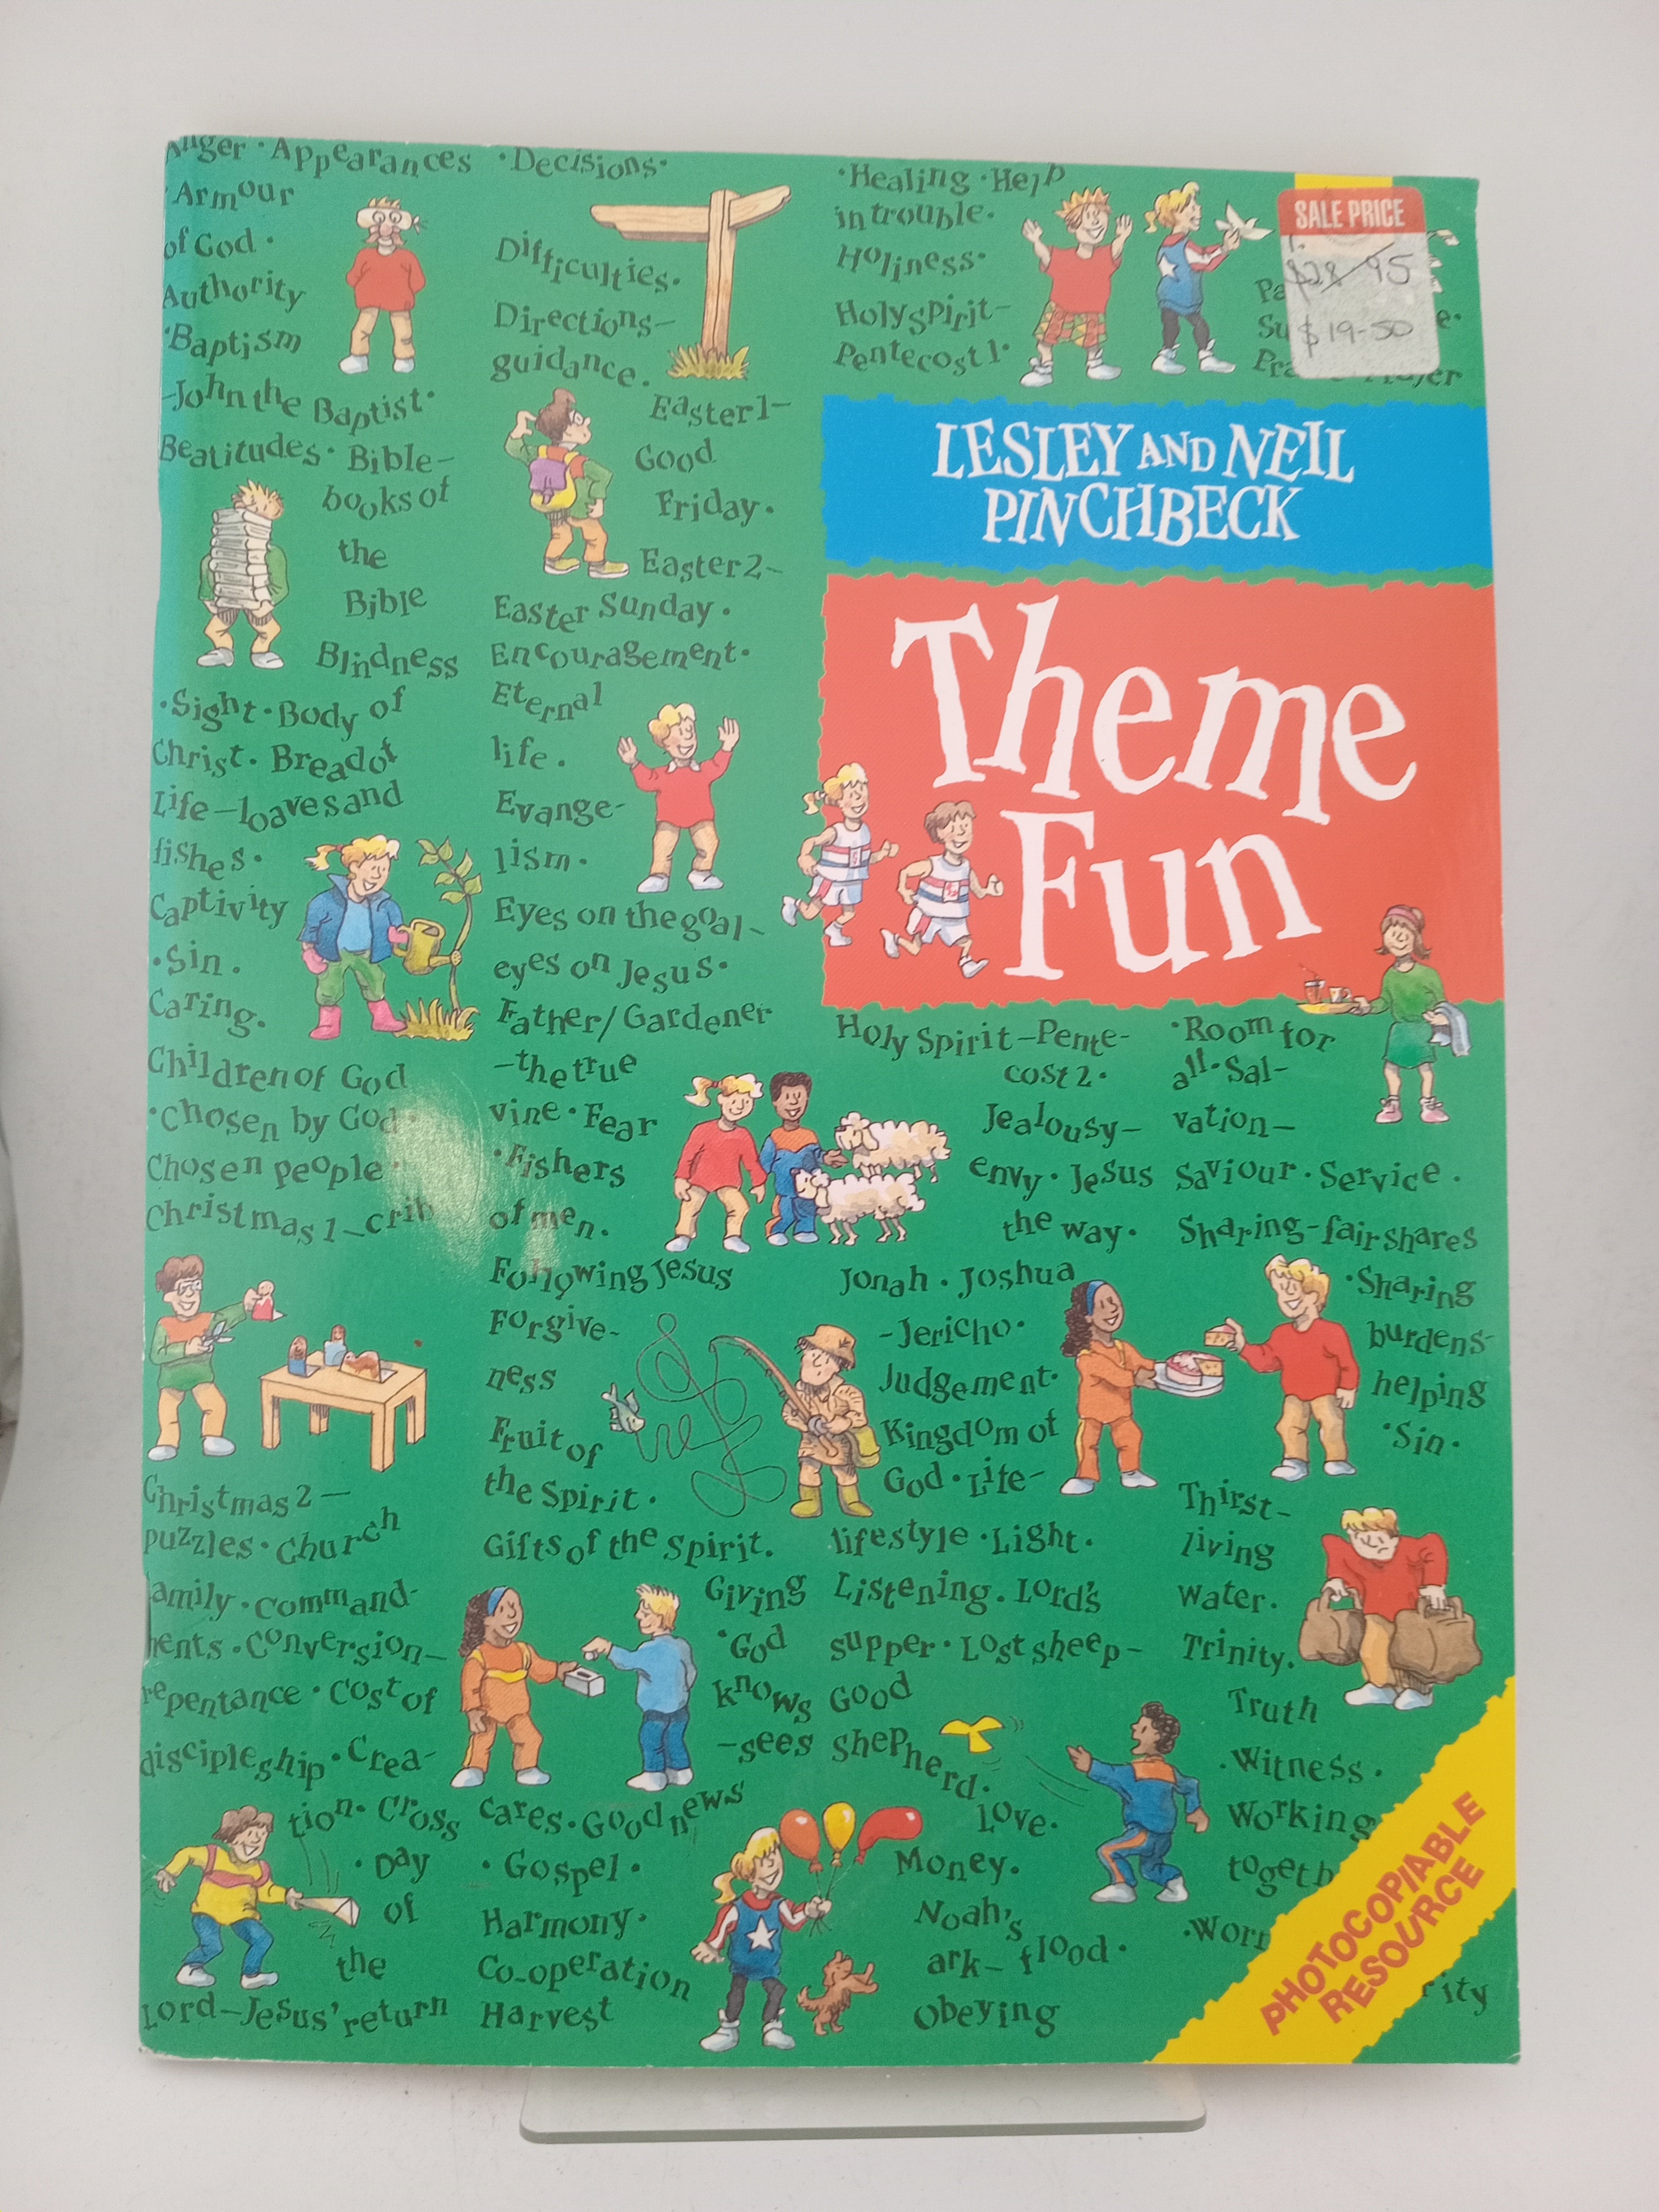 Anger · Appearances
· Armour
of God ·
Authority
· Baptism
-John the Baptist ·
Beatitudes · Bible-
books of
the
Bible
Blindness
· Sight · Body of
Christ · Bread of
Life – loaves and
fishes ·
Captivity
· Sin ·
Caring ·
Children of God
· Chosen by God ·
Chosen people ·
Christmas 1 – crib
Christmas 2 –
puzzles · Church
family · Command-
ments · Conversion –
repentance · Cost of
discipleship · Crea-
tion · Cross
· Day
of
the
Lord – Jesus' return
· Decisions ·
Difficulties ·
Directions –
guidance ·
Easter 1 –
Good
Friday ·
Easter 2 –
Easter Sunday ·
Encouragement ·
Eternal
life ·
Evange-
lism ·
Eyes on the goal –
eyes on Jesus ·
Father/Gardener
– the true
vine · Fear
· Fishers
of men ·
Following Jesus
Forgive-
ness
Fruit of
the Spirit ·
Gifts of the Spirit ·
Giving
· God
knows
– sees
cares · Good news
· Gospel ·
Harmony ·
Co-operation
Harvest
· Healing · Help
in trouble ·
Holiness ·
Holy Spirit –
Pentecost 1 ·
SALE PRICE
$28.95
$19-50
LESLEY AND NEIL
PINCHBECK
Theme
Fun
Holy Spirit – Pente-
cost 2 ·
Jealousy –
envy · Jesus
the way ·
Jonah · Joshua
- Jericho ·
Judgement ·
Kingdom of
God · Life –
lifestyle · Light ·
Listening · Lord's
supper · Lost sheep –
Good
Shepherd ·
Love ·
Money ·
Noah's
ark – flood ·
Obeying
· Room for
all · Sal-
vation –
Saviour · Service ·
Sharing – fair shares
· Sharing
burdens –
helping
· Sin ·
Thirst –
living
water ·
Trinity ·
Truth
· Witness ·
Working
PHOTOCOPIABLE
RESOURCE